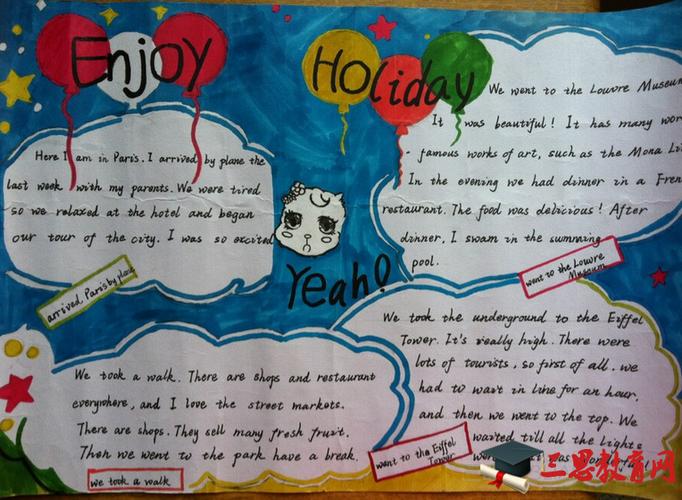 Enjoy Holiday
Here I am in Paris. I arrived by plane the
last week with my parents. We were tired
so we relaxed at the hotel and began
our tour of the city. I was so excited
arrived Paris by plane
We went to the Louvre Museum
It was beautiful! It has many wor
- famous works of art, such as the Mona Li
In the evening we had dinner in a Fren
restaurant. The food was delicious! After
dinner, I swam in the summing
pool.
went to the Louvre
Museum
Yeah!
We took a walk. There are shops and restaurant
everywhere, and I love the street markets.
There are shops. They sell many fresh fruit.
Then we went to the park have a break.
we took a walk
We took the underground to the Eiffel
Tower. It's really high. There were
lots of tourists, so first of all. we
had to wait in line for an hour.
and then we went to the top. We
waited till all the lights
was
went to the Eiffel
Tower
三思教育网